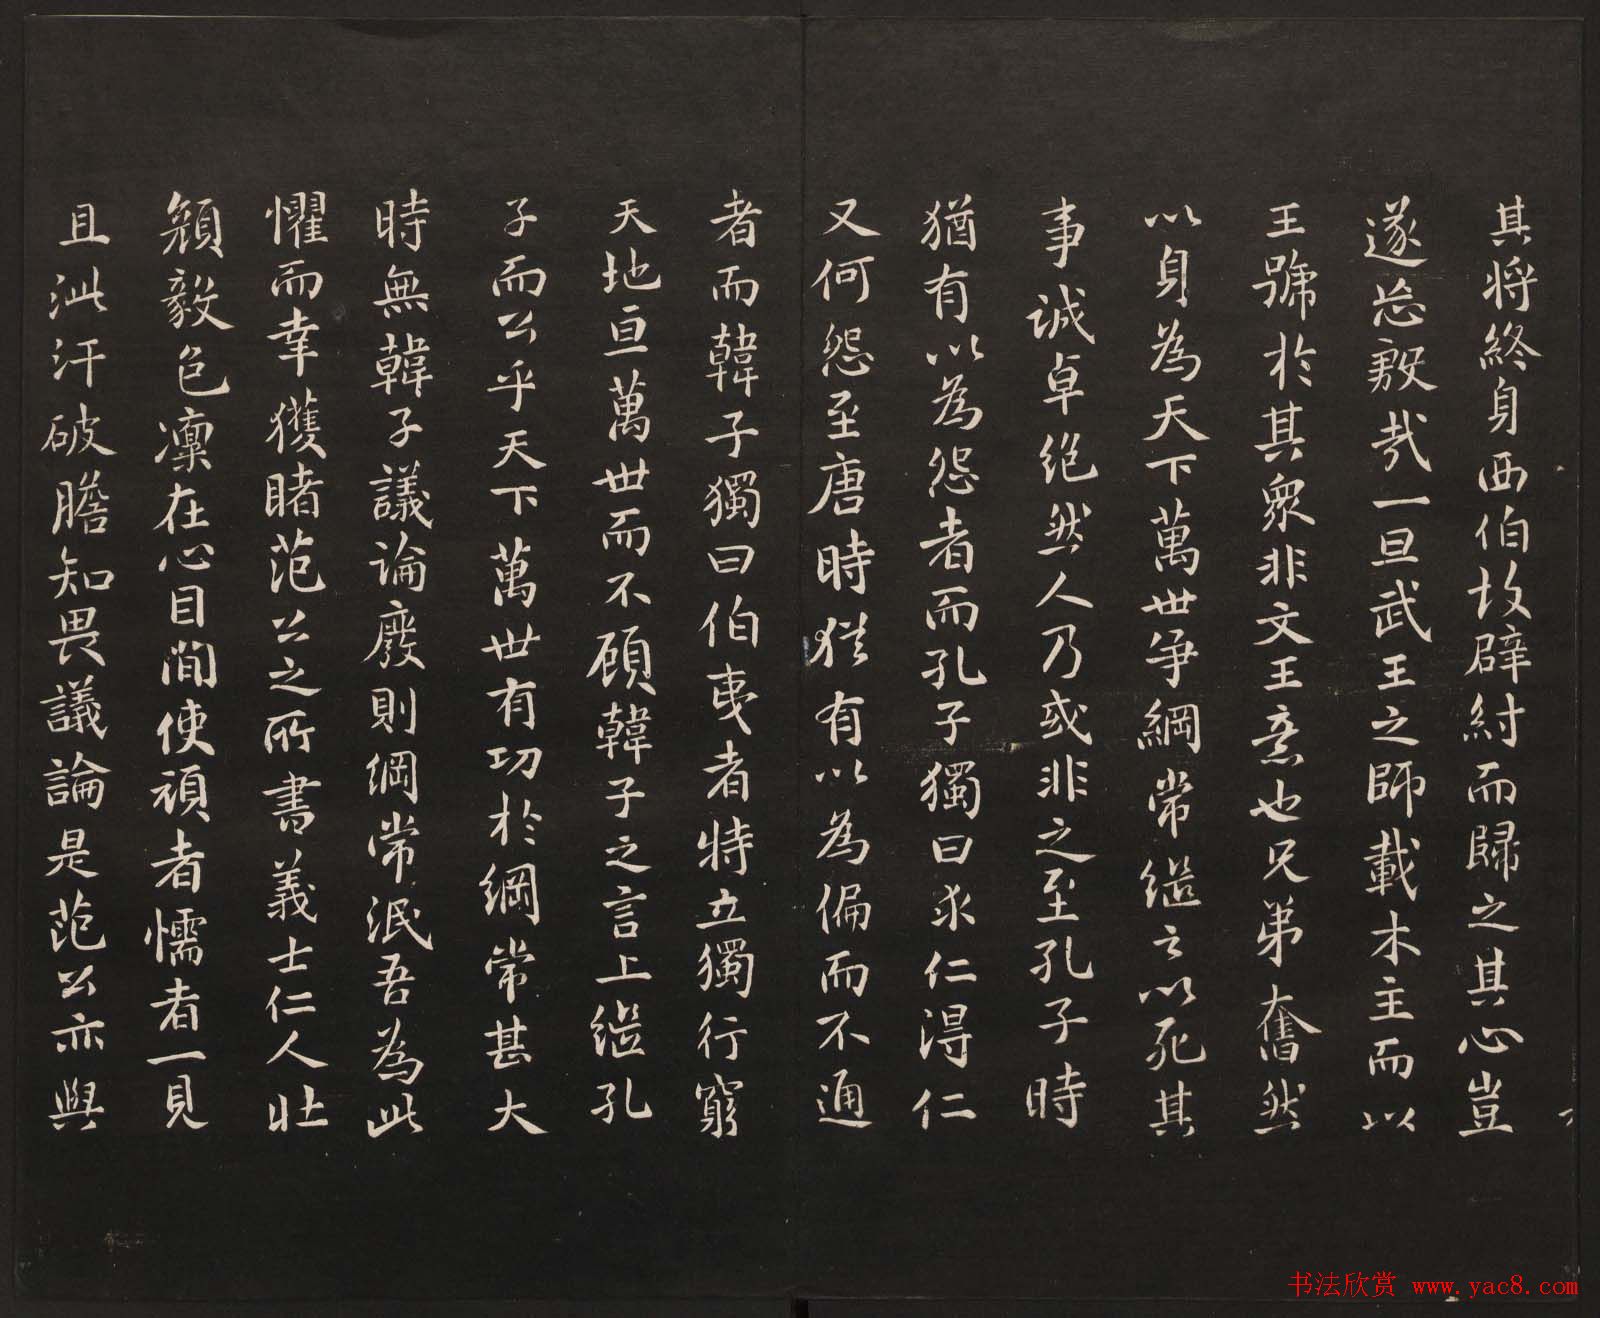 其將終身西伯故辟紂而歸之其心豈
遂忘殷哉一旦武王之師載木主而以
王號於其衆非文王意也兄弟奮然
以身為天下萬世爭綱常繼之以死其
事誠卓絕然人乃或非之至孔子時
猶有以為怨者而孔子獨曰求仁得仁
又何怨至唐時猶有以為偏而不通
者而韓子獨曰伯夷者特立獨行窮
天地亘萬世而不顧韓子之言上繼孔
子而公乎天下萬世有功於綱常甚大
時無韓子議論廢則綱常泯吾為此
懼而幸獲睹范公之所書義士仁人壯
顏毅色凜在心目間使頑者懦者一見
且泚汗破膽知畏議論是范公亦與
书法欣赏 www.yac8.com